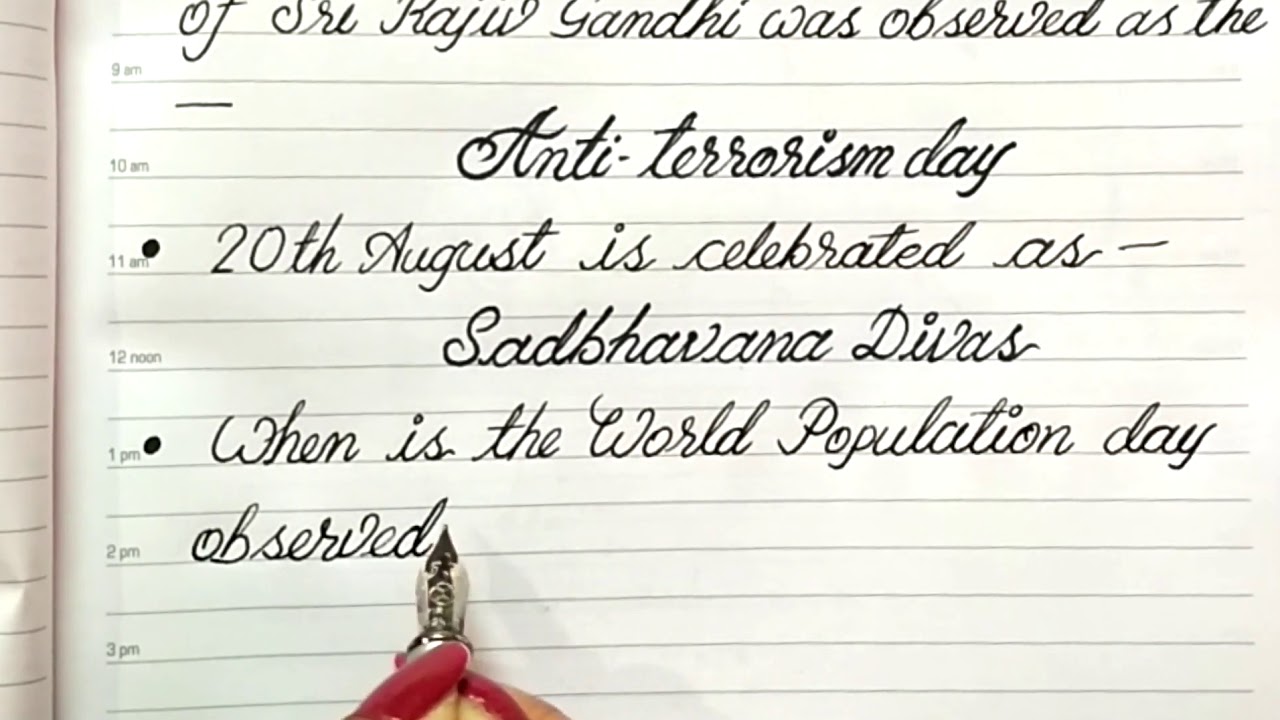 of Sri Rajiv Gandhi was observed as the
9 am
—
Anti-terrorism day
10 am
• 20th August is celebrated as —
11 am
Sadbhavana Divas
12 noon
• When is the World Population day
1 pm
observed
2 pm
3 pm